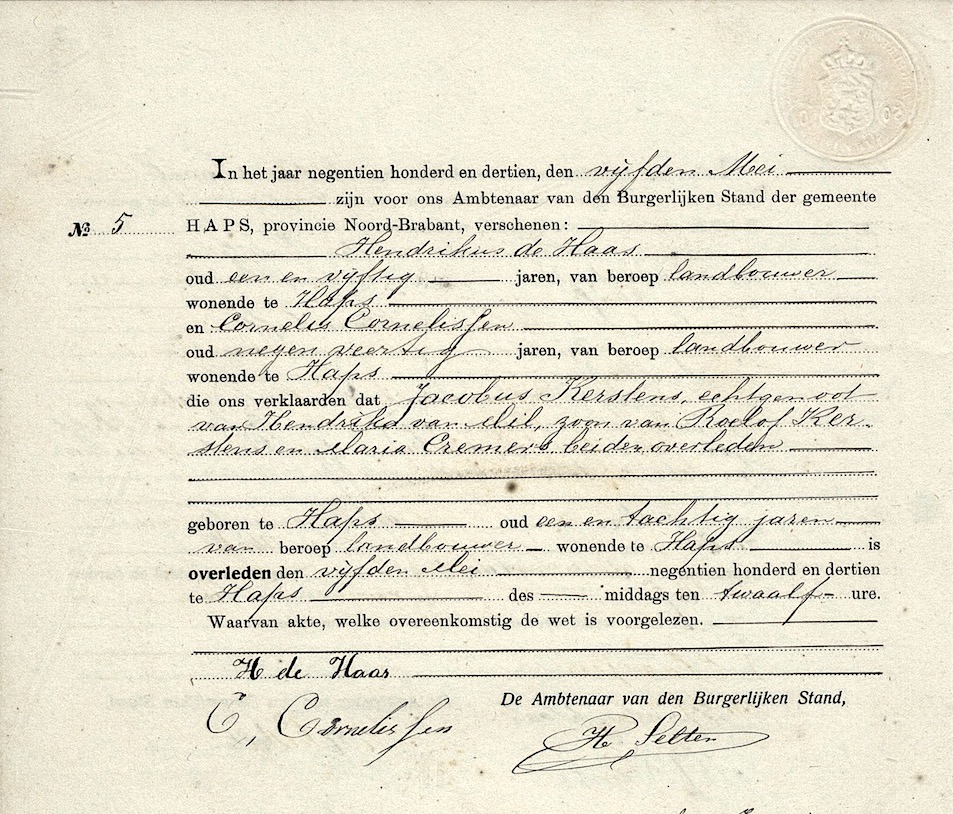 In het jaar negentien honderd en dertien, den vijfden Mei
zijn voor ons Ambtenaar van den Burgerlijken Stand der gemeente
№ 5 HAPS, provincie Noord-Brabant, verschenen:
Hendrikus de Haas
oud een en vijftig jaren, van beroep landbouwer
wonende te Haps
en Cornelis Cornelissen
oud negen veertig jaren, van beroep landbouwer
wonende te Haps
die ons verklaarden dat Jacobus Kerstens, echtgenoot
van Hendrika van Mil, zoon van Roelof Ker-
stens en Maria Cremers beiden overleden
geboren te Haps oud een en tachtig jaren
van beroep landbouwer wonende te Haps is
overleden den vijfden Mei negentien honderd en dertien
te Haps des middags ten twaalf ure.
Waarvan akte, welke overeenkomstig de wet is voorgelezen.
H de Haas
De Ambtenaar van den Burgerlijken Stand,
C, Cornelissen
H Selten